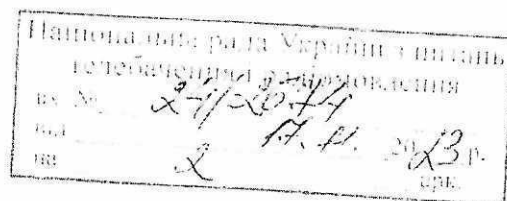 Національна рада України з питань
телебачення і радіомовлення
вх. №
від 17.11. 2023 р.
на 2 арк.